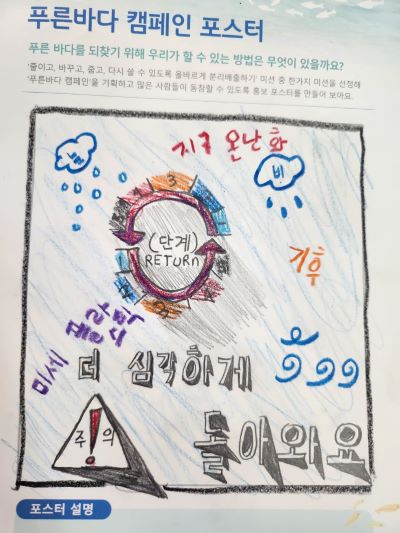 푸른바다 캠페인 포스터
푸른 바다를 되찾기 위해 우리가 할 수 있는 방법은 무엇이 있을까요?
'줄이고, 바꾸고, 줍고, 다시 쓸 수 있도록 올바르게 분리배출하기' 미션 중 한가지 미션을 선정해
'푸른바다 캠페인'을 기획하고 많은 사람들이 동참할 수 있도록 홍보 포스터를 만들어 보아요.
지구 온난화
비
3
(단계)
RETURN
기후
미세
더 심각하게
주!의
돌아와요
포스터 설명